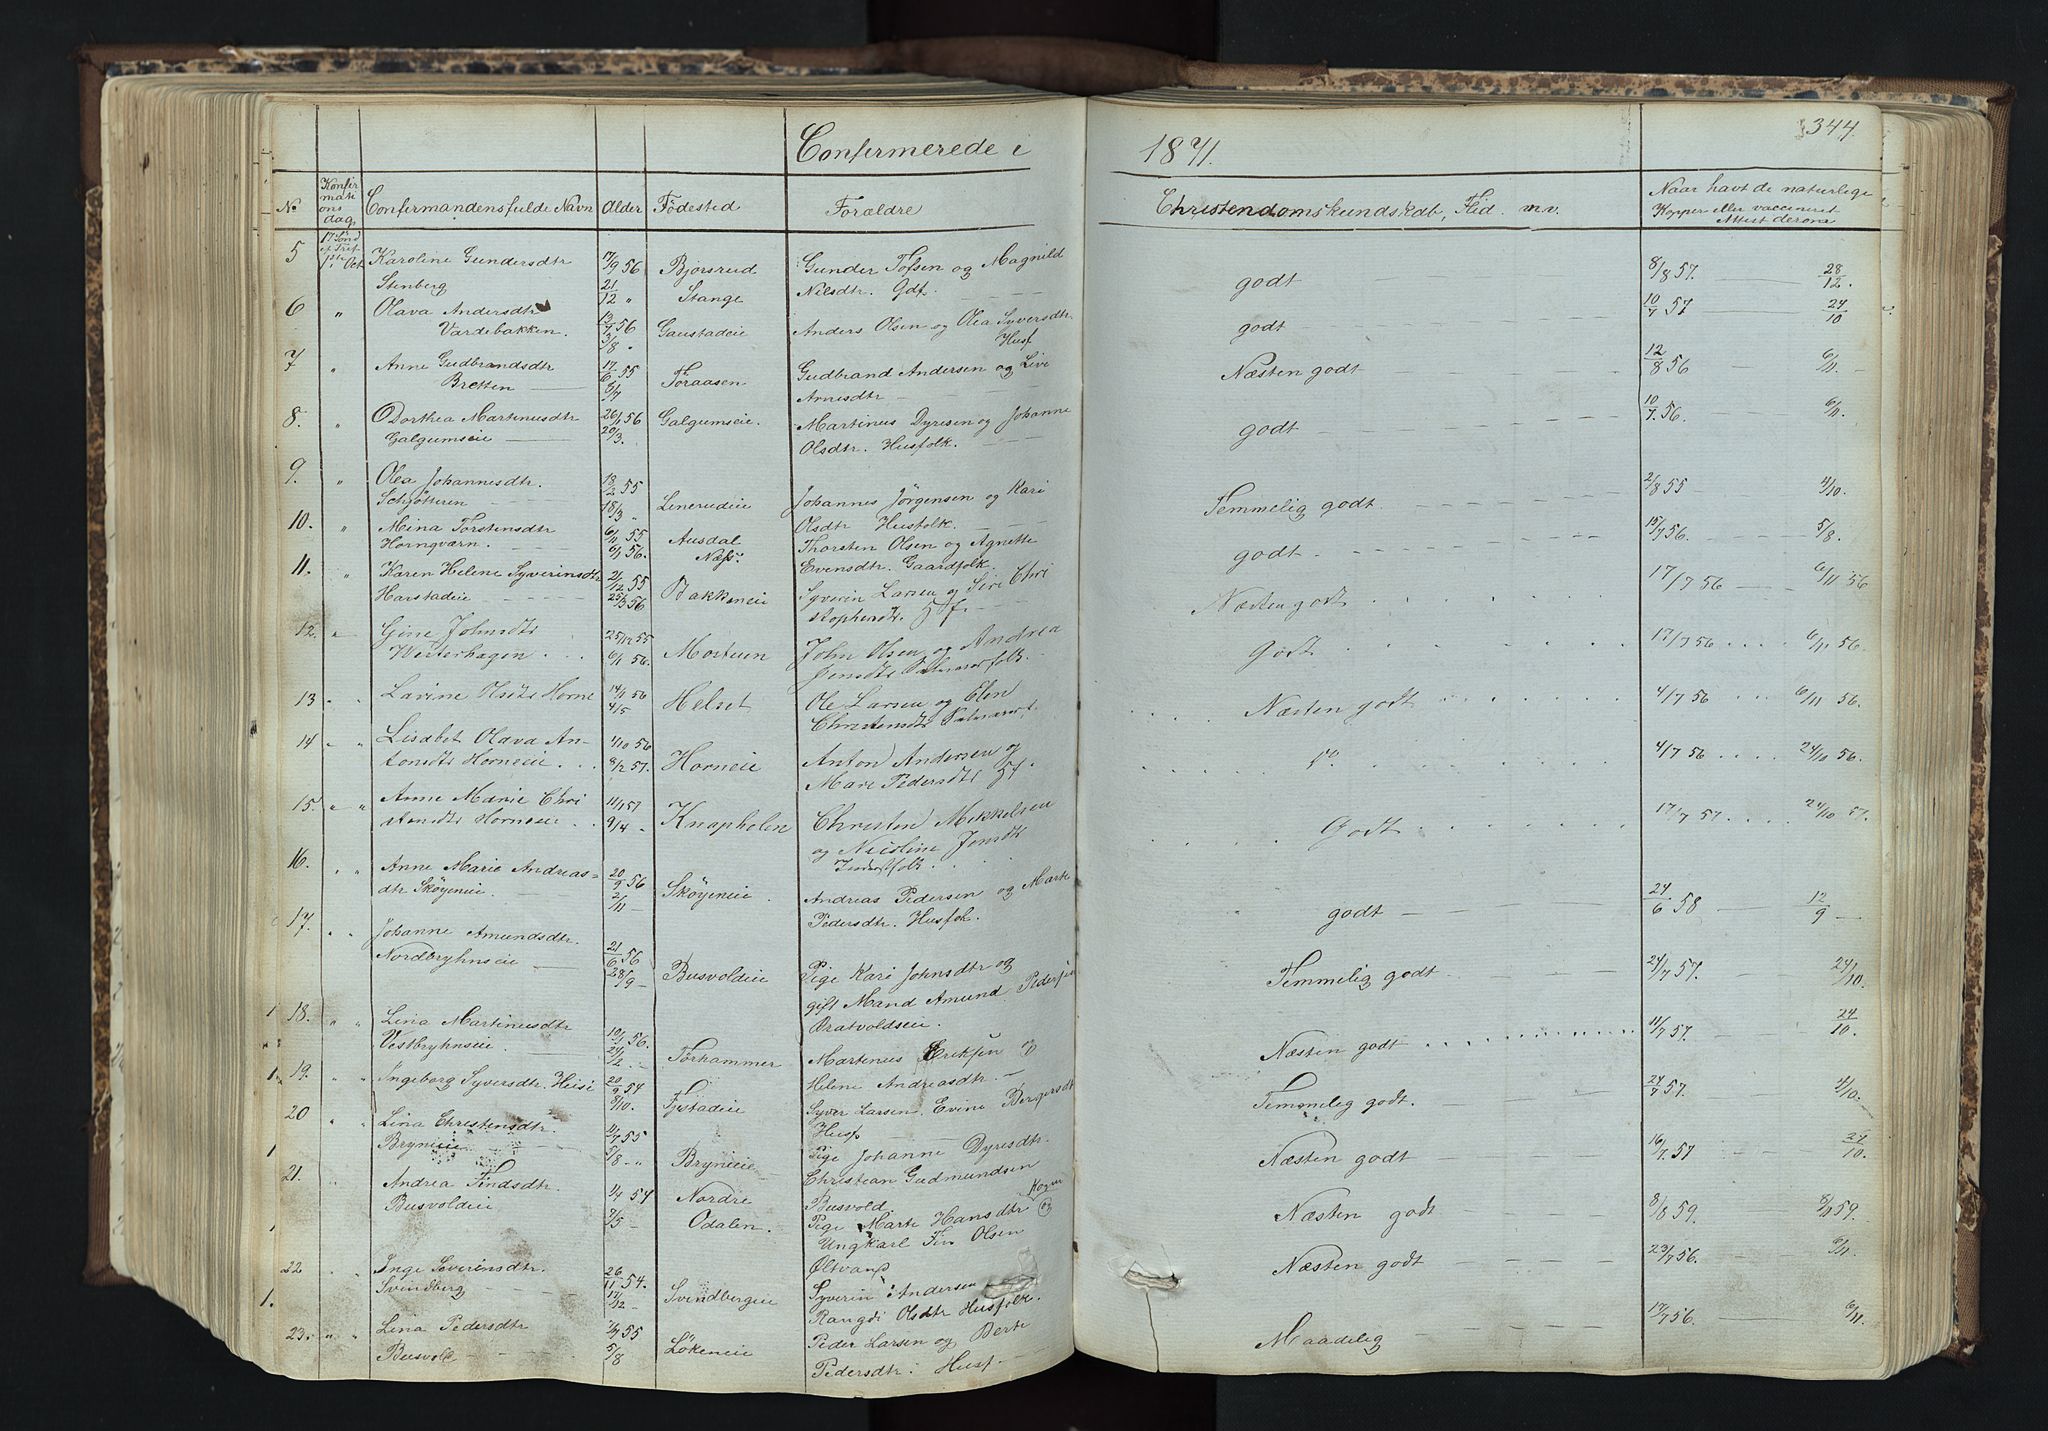 Confirmerede i 1871.
344.
No
Konfirmationsdag
Confirmandens fulde Navn
Alder
Födested
Forældre
Christendomskundskab, Flid m.v.
Naar havt de naturlige
Kopper eller vaccineret
Attest derom
17 Sönd
e. Tref
1ste Oct
5 Karoline Gundersdtr 17/9 56 Bjorsrud Gunder Tofsen og Magnild godt 8/8 57. 28/12.
Stenberg 21/12 " Stange Nilsdtr. Gdf.
6 " Olava Andersdtr 13/7 56 Gaustadeie Anders Olsen og Olea Syversdtr. godt 10/7 57 24/10
Vardebakken. 3/8 Husf
7 " Anne Gudbrandsdtr 17/6 55 Foraasen Gudbrand Andersen og Live Næsten godt 12/8 56 6/11
Bretten 5/7 Arnesdtr
8. " Dorthea Martinusdtr 26/1 56 Galgumseie. Martinus Dyresen og Johanne godt 10/7. 56. 6/11
Galgumseie 20/3. Olsdtr. Husfolk.
9. " Olea Johannesdtr. 18/2 55 Linerudeie Johannes Jörgensen og Kari Temmelig godt. 2/8 55 4/10.
18/3 " Olsdtr Husfolk.
10. " Mina Torstensdtr 6/11 55 Ausdal Thorsten Olsen og Agnette godt. 15/7 56. 5/8.
Horngværn. 6/1 56. Næss. Evensdtr. Gaardfolk.
11. " Karen Helene Syverinsdtr 2/12 55 Bakkeneie Syverin Larsen og Siri Chri Næsten godt 17/7 56 6/11 56
Harstadeie 25/3 56 stophersdtr. Hf.
12. " Gine Johnsdtr 25/12 55 Mostuen John Olsen og Andrea Godt 17/7 56 6/11 56.
Westerhagen 6/1 56. Jensdtr
13 " Lavine Olsdtr Horne 14/1 56 Helset Ole Larsen og Elen Næsten godt 4/7 56 6/11 56.
4/5 Christensdtr
14 " " Lisabet Olava An- 4/10 56 Horneie Anton Andersen og do 4/7 56 24/10 56.
tonsdtr Horneie 8/2 57. Mari Pedersdtr Hf.
15. " " Anne Marie Chri 11/1 57 Knapholen Christen Mikkelsen Godt 17/7 57 24/10 57.
stensdtr Horneie 9/4 og Nicoline Jensdtr
Inderstfolk.
16. " " Anne Marie Andreas- 20/9 56 Sköyeneie Andreas Pedersen og Marte godt 24/6 58 12/9
dtr Sköyeneie 2/11 Pedersdtr. Husfolk.
17. " " Johanne Amundsdtr. 21/6 56 Busvoldeie Pige Kari Johnsdtr og Temmelig godt 24/7 57. 24/10.
Nordbryhnseie 28/9 gift Mand Amund Pedersen
Bratvoldseie.
1 18. " " Lina Martinusdtr 10/1 56. Torhammer Martinus Eriksen og Næsten godt 11/7 57. 24/10.
Vestbryhnseie 24/2 Helene Andreasdtr.
1. 19. " " Ingeborg Syversdtr. Huse 20/9 54 Fjestadeie Syver Larsen. Evine Bergersdt Temmelig godt. 24/7 57. 4/10.
8/10. Husf
20 " " Lina Christensdtr. 11/7 55 Bryneeie Pige Johanne Dyresdtr. Næsten godt 16/7. 57 24/10.
1 Bryneeie 5/8 " Christian Gudmundsen
Busvold.
21. Andrea Findsdtr. 1/4 54 Nordre Pige Marte Hansdtr og Næsten godt 8/8 59. 8/11 59.
1 Busvoldeie 7/5 Odalen. Ungkarl Fin Olsen
22 " Inge Severinsdtr. 26/11 54. Svindbergeie Syverin Andersen Næsten godt 23/7 56. 6/11.
1. Svindberg 17/12 Rangdi Olsdtr Husfolk.
23. " " Lina Pedersdtr 7/7 55 Lökeneie Peder Larsen og Berte Maadelig 17/7 56. 6/11.
Busvold 5/8 Pedersdtr. Husf.